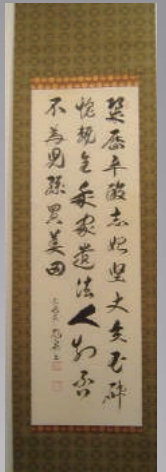 幾歴辛酸志始堅丈夫玉砕
愧甎全我家遺法人知否
不為児孫買美田